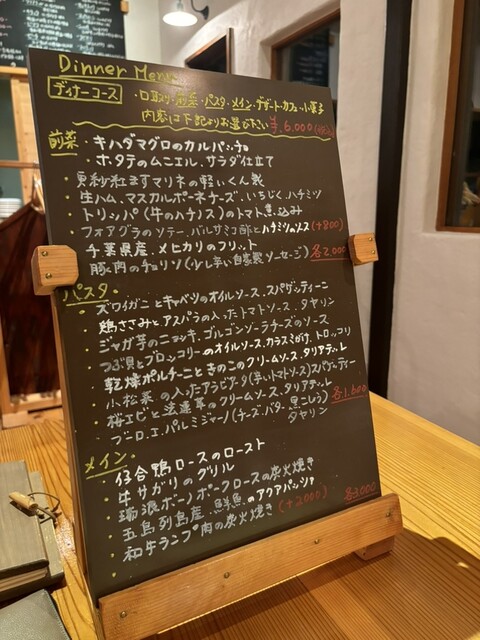 Dinner Menu
ディナーコース
・口取り・前菜・パスタ・メイン・デザート・カフェ・小菓子
内容は下記よりお選び下さい ¥6,000
前菜
・キハダマグロのカルパッチョ
・ホタテのムニエル、サラダ仕立て
・更紗紅ますマリネの軽いくん製
・生ハム、マスカルポーネチーズ、いちじく、ハチミツ
・トリッパ(牛のハチノス)のトマト煮込み
・フォアグラのソテー、バルサミコ酢とハチミツのソース(+800)
・千葉県産、メヒカリのフリット
・豚肉のチョリソ(少し辛い自家製ソーセージ) 各2,000
パスタ
・ズワイガニとキャベツのオイルソース、スパゲッティーニ
・鶏ささみとアスパラの入ったトマトソース、タヤリン
・ジャガ芋のニョッキ、ゴルゴンゾーラチーズのソース
・つぶ貝とブロッコリーのオイルソース、カラスミがけ、トロッコリ
・乾燥ポルチーニときのこのクリームソース、タリアテッレ
・小松菜の入ったアラビアータ(辛いトマトソース)スパゲッティー
・桜エビと法蓮草のクリームソース、タリアテッレ 各1,600
・ブーロ、エ、パルミジャーノ(チーズ、バター、黒こしょう)
タヤリン
メイン
・合鴨ロースのロースト
・牛サガリのグリル
・瑞浪ボーノポークロースの炭火焼き
・五島列島産、鮮魚のアクアパッツァ
・和牛ランプ肉の炭火焼き(+2000) 各3,000